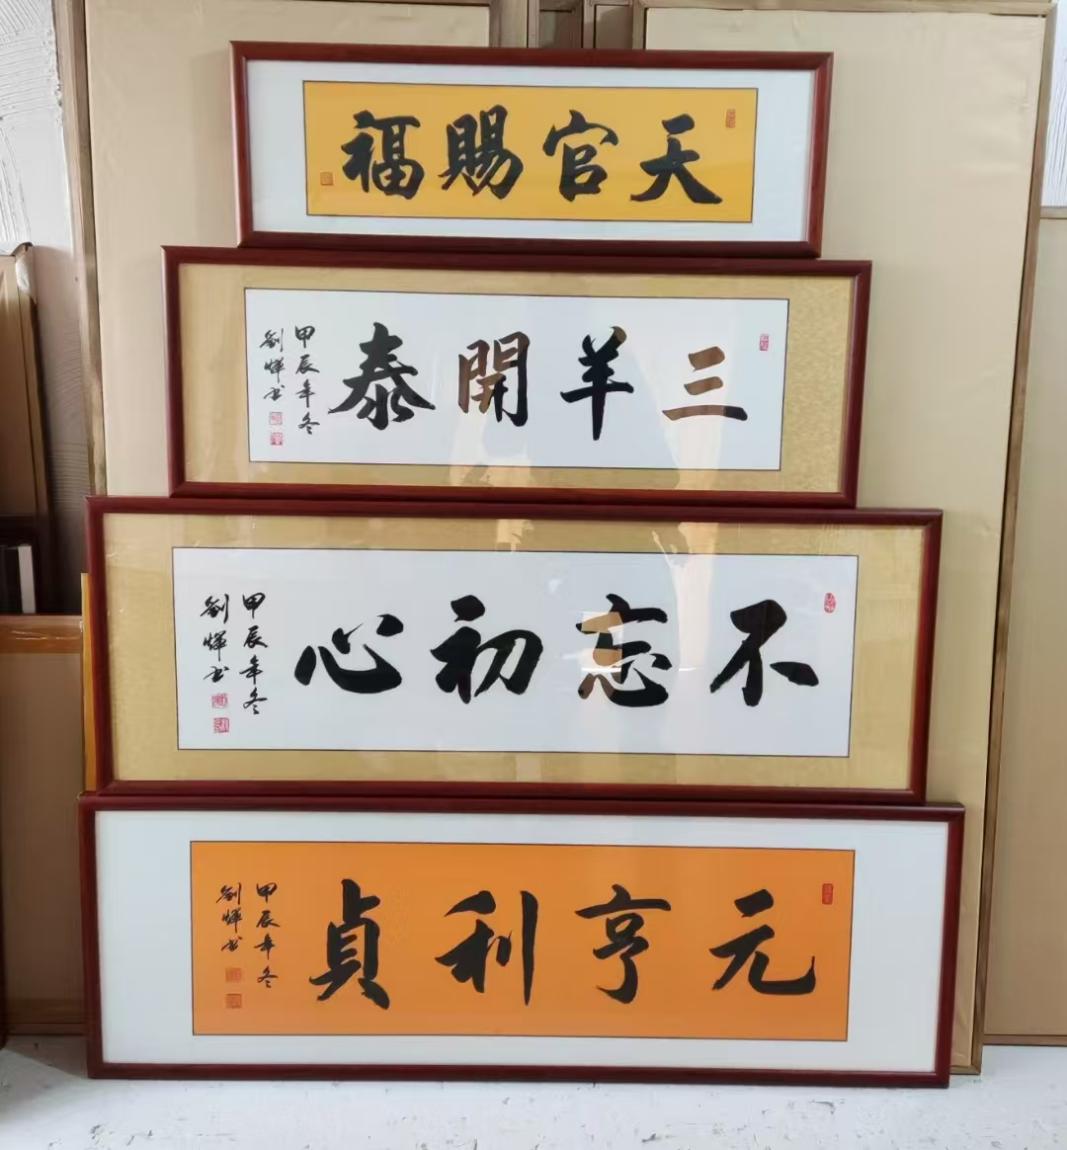 天官賜福
三羊開泰
甲辰年冬
劉輝书
不忘初心
甲辰年冬
劉輝书
元亨利貞
甲辰年冬
劉輝书